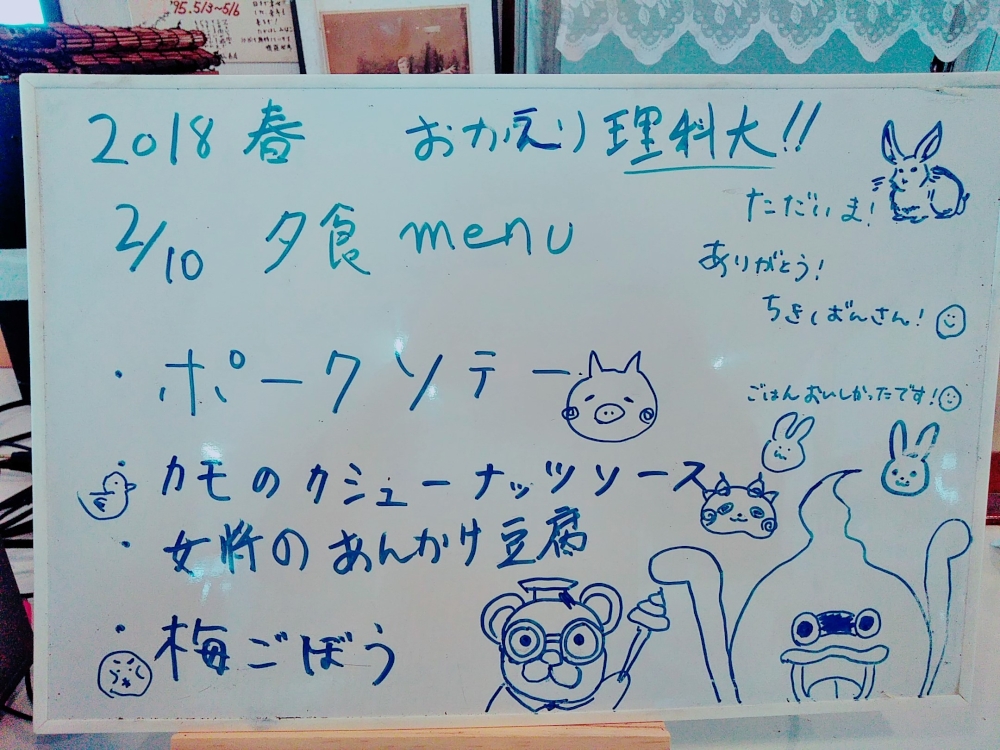 '95.5/3~5/6
2018 春 おかえり理科大!!
ただいま!
2/10 夕食 menu
ありがとう!
ちきしおんさん!
・ポークソテー
ごはんおいしかったです!
・カモのカシューナッツソース
・女将のあんかけ豆腐
・梅ごぼう